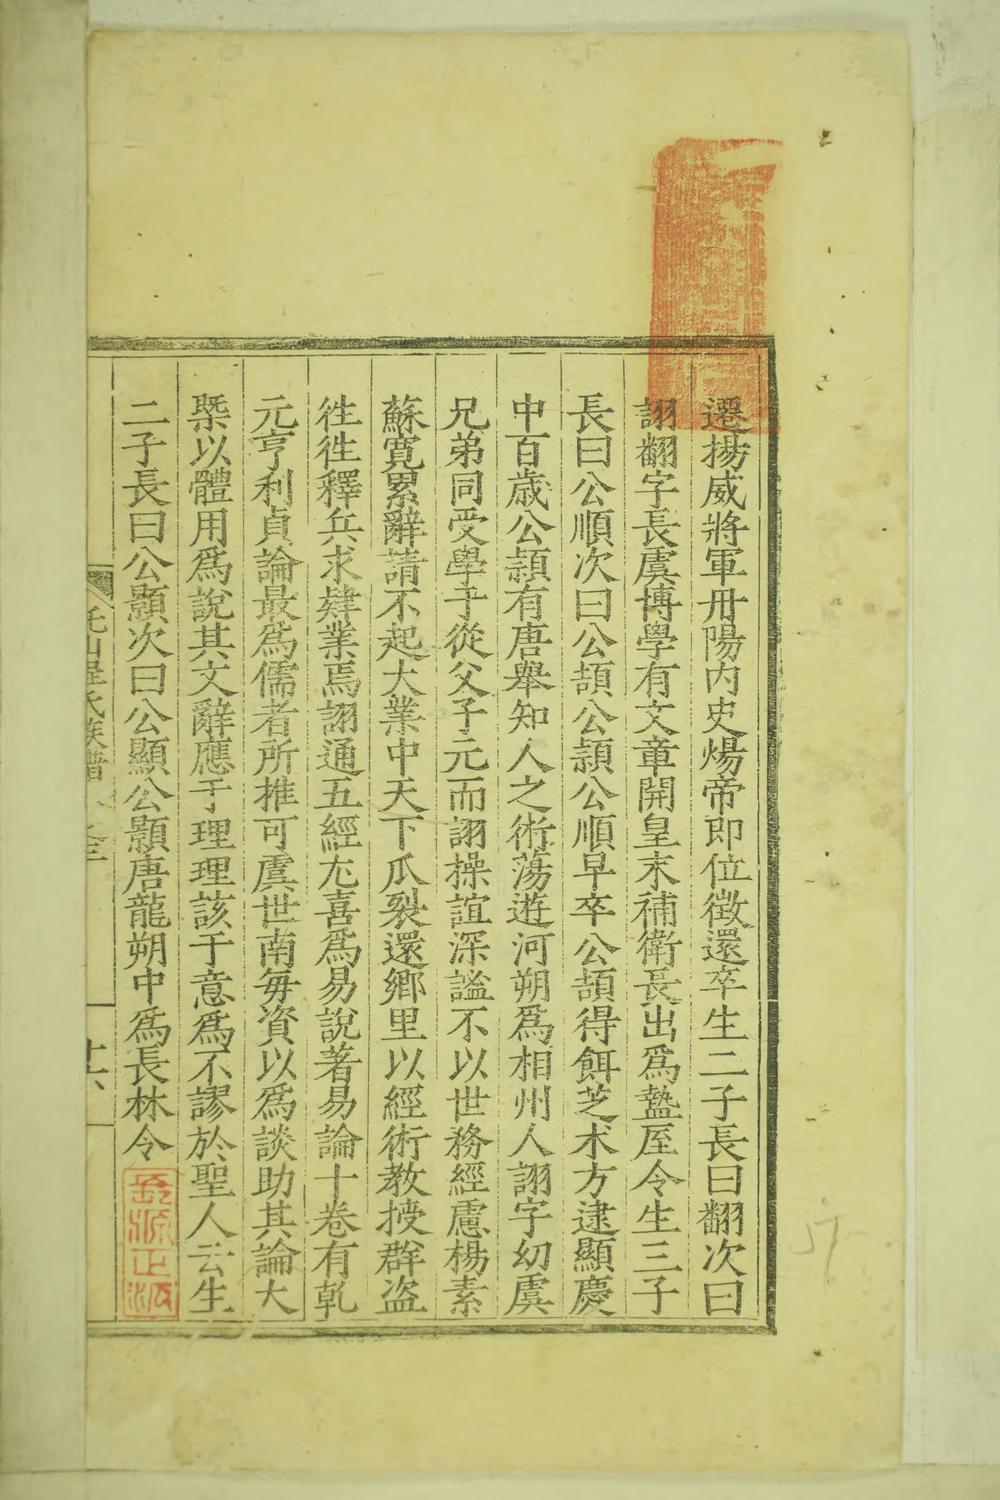 遷揚威將軍丹陽内史煬帝即位徵還卒生二子長曰翻次曰
詡翻字長虞博學有文章開皇末補衛長出爲盩厔令生三子
長曰公順次曰公頡公頴公順早卒公頡得餌芝术方逮顯慶
中百歳公頴有唐舉知人之術蕩遊河朔爲相州人詡字幼虞
兄弟同受學于從父子元而詡操誼深謐不以世務經慮楊素
蘇寛累辭請不起大業中天下瓜裂還鄉里以經術教授群盜
徃徃釋兵求肄業焉詡通五經尤喜爲易說著易論十卷有乹
元亨利貞論最爲儒者所推可虞世南毎資以爲談助其論大
槩以體用爲說其文辭應于理理該于意爲不謬於聖人云生
二子長曰公顥次曰公顯公顥唐龍朔中爲長林令
山程氏族譜
十六